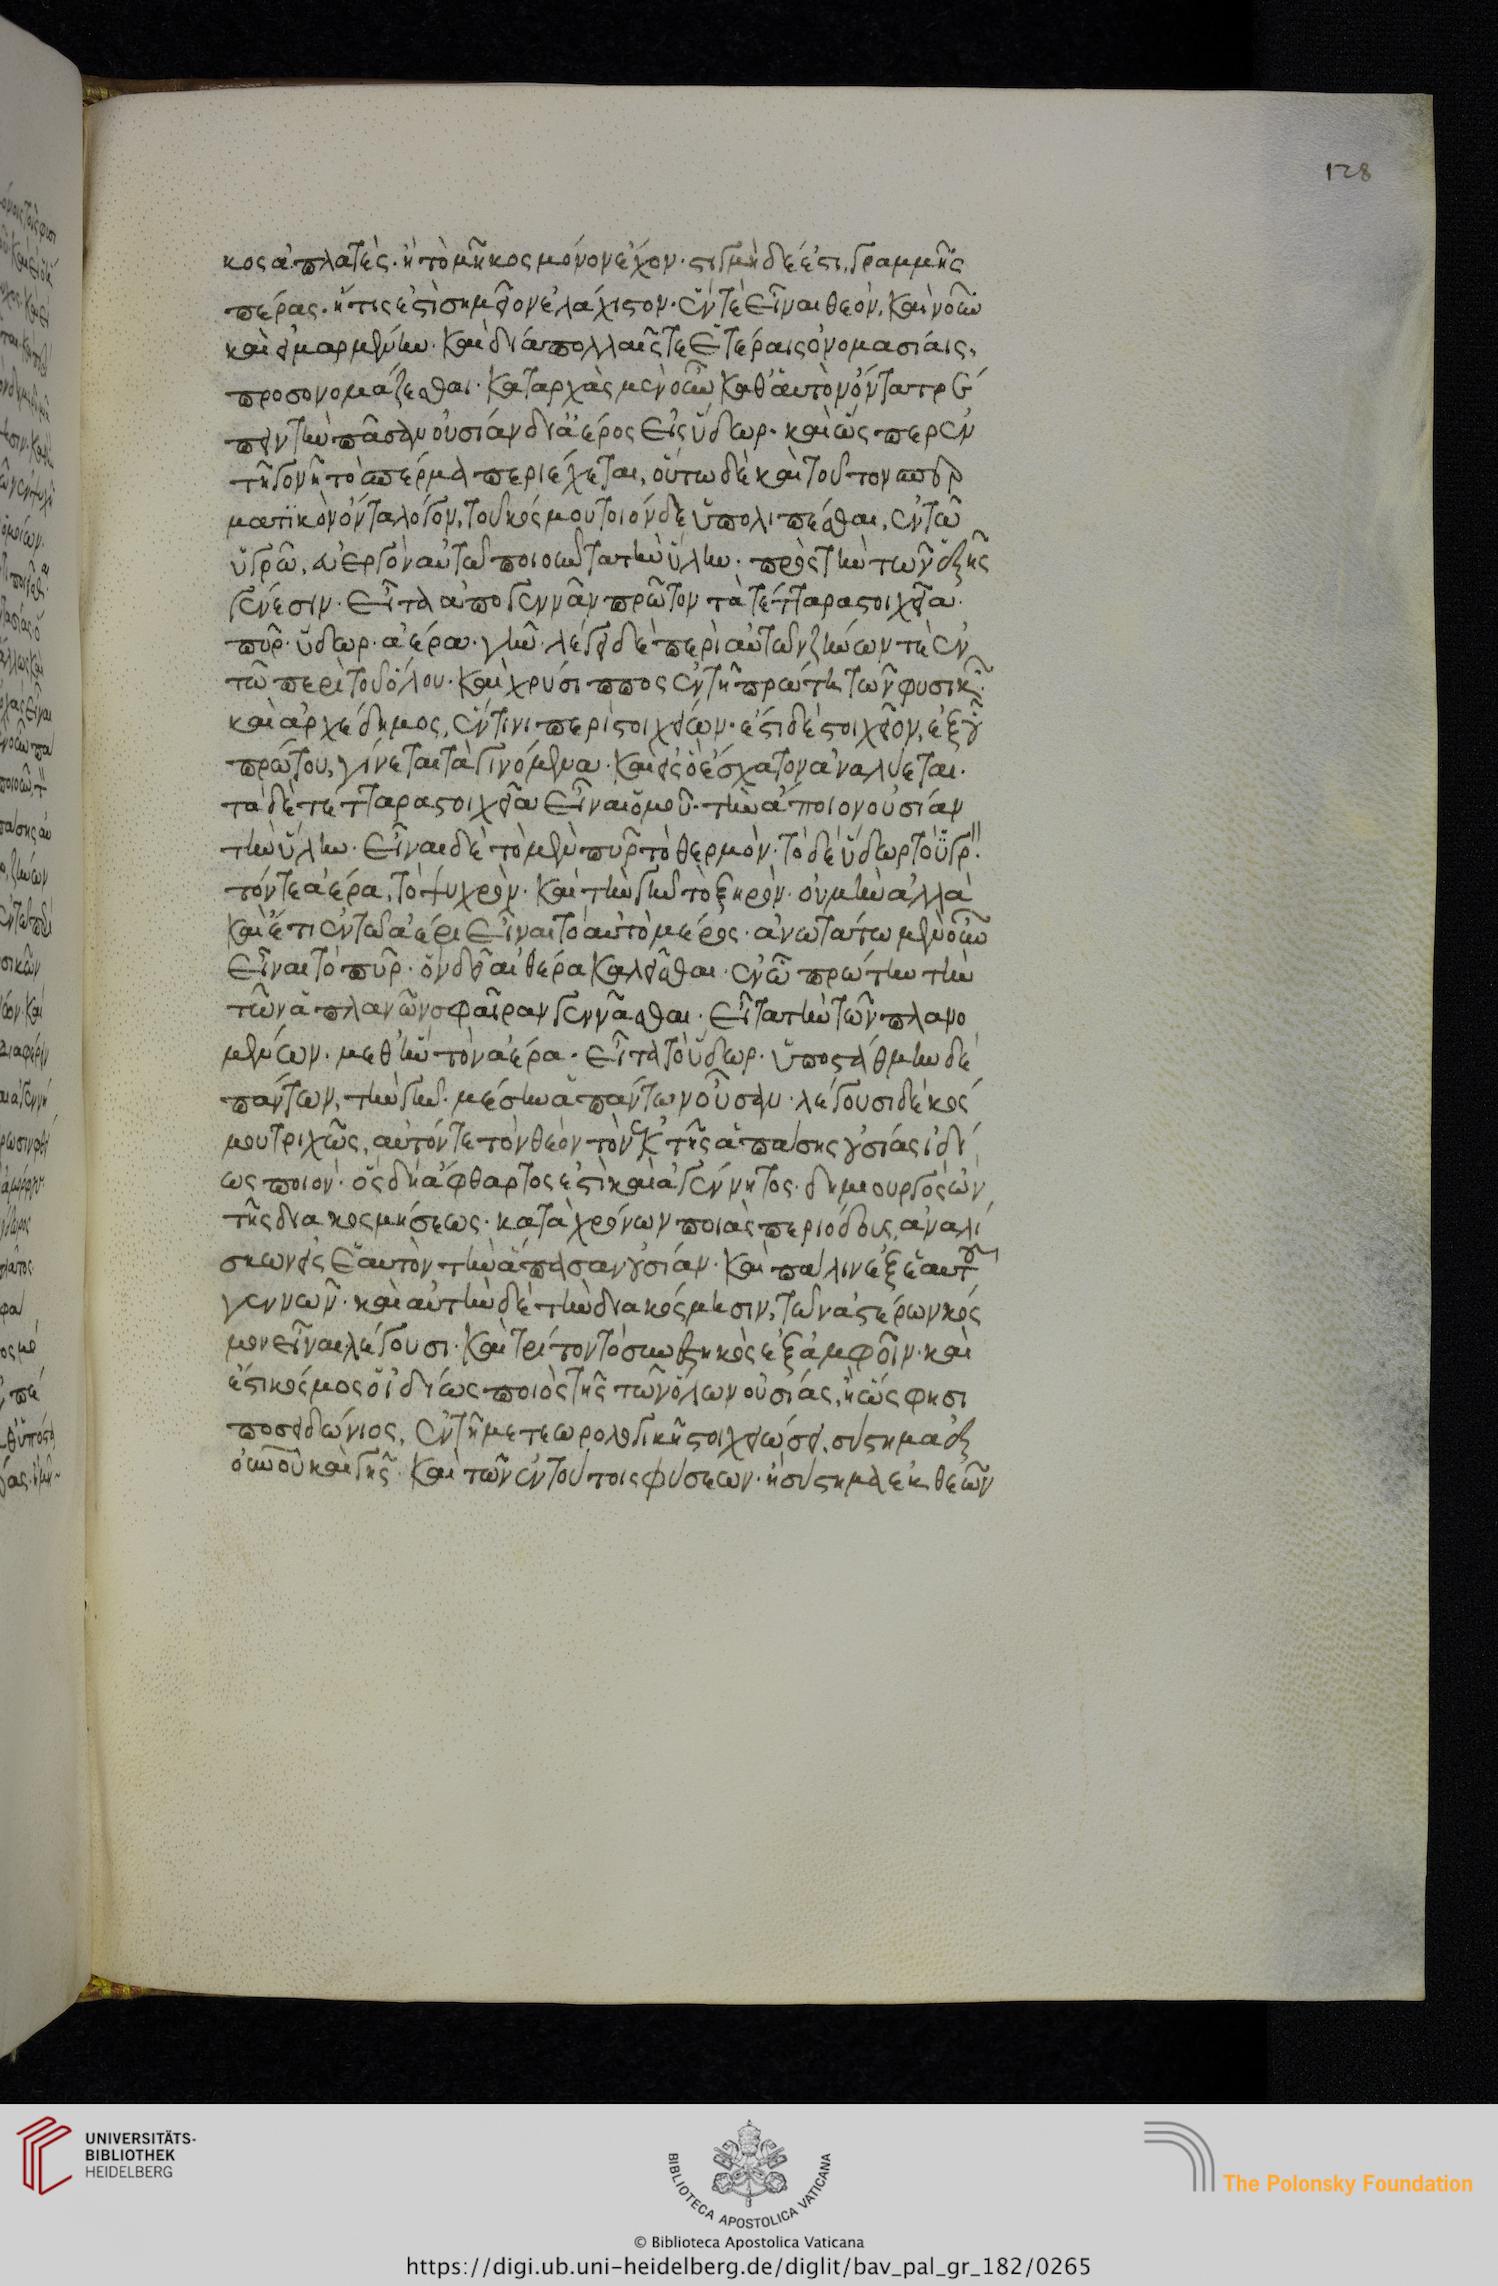 128
κος ἀπλατὲς· ἢ τὸ μῆκος μόνον ἔχον· στιγμὴ δέ ἐστι, γραμμῆς
πέρας· ἥτις ἐστὶ σημεῖον ἐλάχιστον· ἕν τε εἶναι θεὸν, καὶ νοῦν
καὶ εἱμαρμένην· καὶ δία πολλαῖς τε ἑτέραις ὀνομασίαις,
προσονομάζεσθαι· καταρχὰς μὲν οὖν καθ' αὑτὸν ὄντα τρέ
πειν τὴν πᾶσαν οὐσίαν δι' ἀέρος εἰς ὕδωρ· καὶ ὥσπερ ἐν
τῇ γονῇ τὸ σπέρμα περιέχεται, οὕτω δὲ καὶ τοῦτον σπερ
ματικὸν ὄντα λόγον, τοῦ κόσμου τοιόνδε ὑπολιπέσθαι, ἐν τῶ
ὑγρῶ, εὐεργὸν αὑτῶ ποιοῦντα τὴν ὕλην· πρὸς τὴν τῶν ἑξῆς
γένεσιν· εἶτα ἀπογεννᾶν πρῶτον τὰ τέτταρα στοιχεῖα·
πῦρ· ὕδωρ· ἀέρα· γῆν· λέγει δὲ περὶ αὐτῶν ζήνων τε ἐν
τῶ περὶ τοῦ ὅλου· καὶ χρύσιππος ἐν τῇ πρώτη τῶν φυσικῶν·
καὶ ἀρχέδημος, ἔν τινι περὶ στοιχείων· ἔστι δὲ στοιχεῖον, ἐξ οὗ
πρώτου, γίνεται τὰ γινόμενα· καὶ εἰς ὃ ἔσχατον ἀναλύεται·
τὰ δὲ τέτταρα στοιχεῖα εἶναι ὁμοῦ· τὴν ἄποιον οὐσίαν
τὴν ὕλην· εἶναι δὲ τὸ μὲν πῦρ τὸ θερμὸν· τὸ δὲ ὕδωρ τὸ ὑγρ·
τόν τε ἀέρα, τὸ ψυχρὸν· καὶ τὴν γῆν τὸ ξηρὸν· οὐ μὴν ἀλλὰ
καὶ ἔτι ἐν τῶ ἀέρι εἶναι τὸ αὐτὸ μέρος· ἀνωτάτω μὲν οὖν
εἶναι τὸ πῦρ· ὃν δεῖ αἰθέρα καλεῖσθαι· ἐν ὧ πρώτην τὴν
τῶν ἁπλανῶν σφαῖραν γεννᾶσθαι· εἶτα τὴν τῶν πλανο
μένων· μεθ' ἣν τὸν ἀέρα· εἶτα τὸ ὕδωρ· ὑποστάθμην δὲ
πάντων, τὴν γῆν· μέσην ἁπάντων οὖσαν· λέγουσι δὲ κόσ
μον τριχῶς, αὐτόν τε τὸν θεὸν τὸν ἐκ τῆς ἁπάσης οὐσίας ἰδί
ως ποιὸν· ὃς δὴ ἄφθαρτος ἐστὶ καὶ ἀγέννητος· δημιουργὸς ὢν
τῆς διακοσμήσεως· κατὰ χρόνων ποιὰς περιόδους, ἀναλί
σκων εἰς ἑαυτὸν τὴν ἅπασαν οὐσίαν· καὶ πάλιν ἐξ ἑαυτοῦ
γεννῶν· καὶ αὐτὴν δὲ τὴν διακόσμησιν, τῶν ἀστέρων κόσ
μον εἶναι λέγουσι· καὶ τρίτον τὸ συνεστηκὸς ἐξ ἀμφοῖν· καὶ
ἔστι κόσμος ὁ ἰδίως ποιὸς τῆς τῶν ὅλων οὐσίας, ἢ ὥς φησι
ποσειδώνιος, ἐν τῇ μετεωρολογικῇ στοιχειώσει, σύστημα ἐξ
οὐνοῦ καὶ γῆς· καὶ τῶν ἐν τούτοις φύσεων· ἢ σύστημα ἐκ θεῶν
UNIVERSITÄTS-
BIBLIOTHEK
HEIDELBERG
BIBLIOTECA APOSTOLICA VATICANA
The Polonsky Foundation
© Biblioteca Apostolica Vaticana
https://digi.ub.uni-heidelberg.de/diglit/bav_pal_gr_182/0265